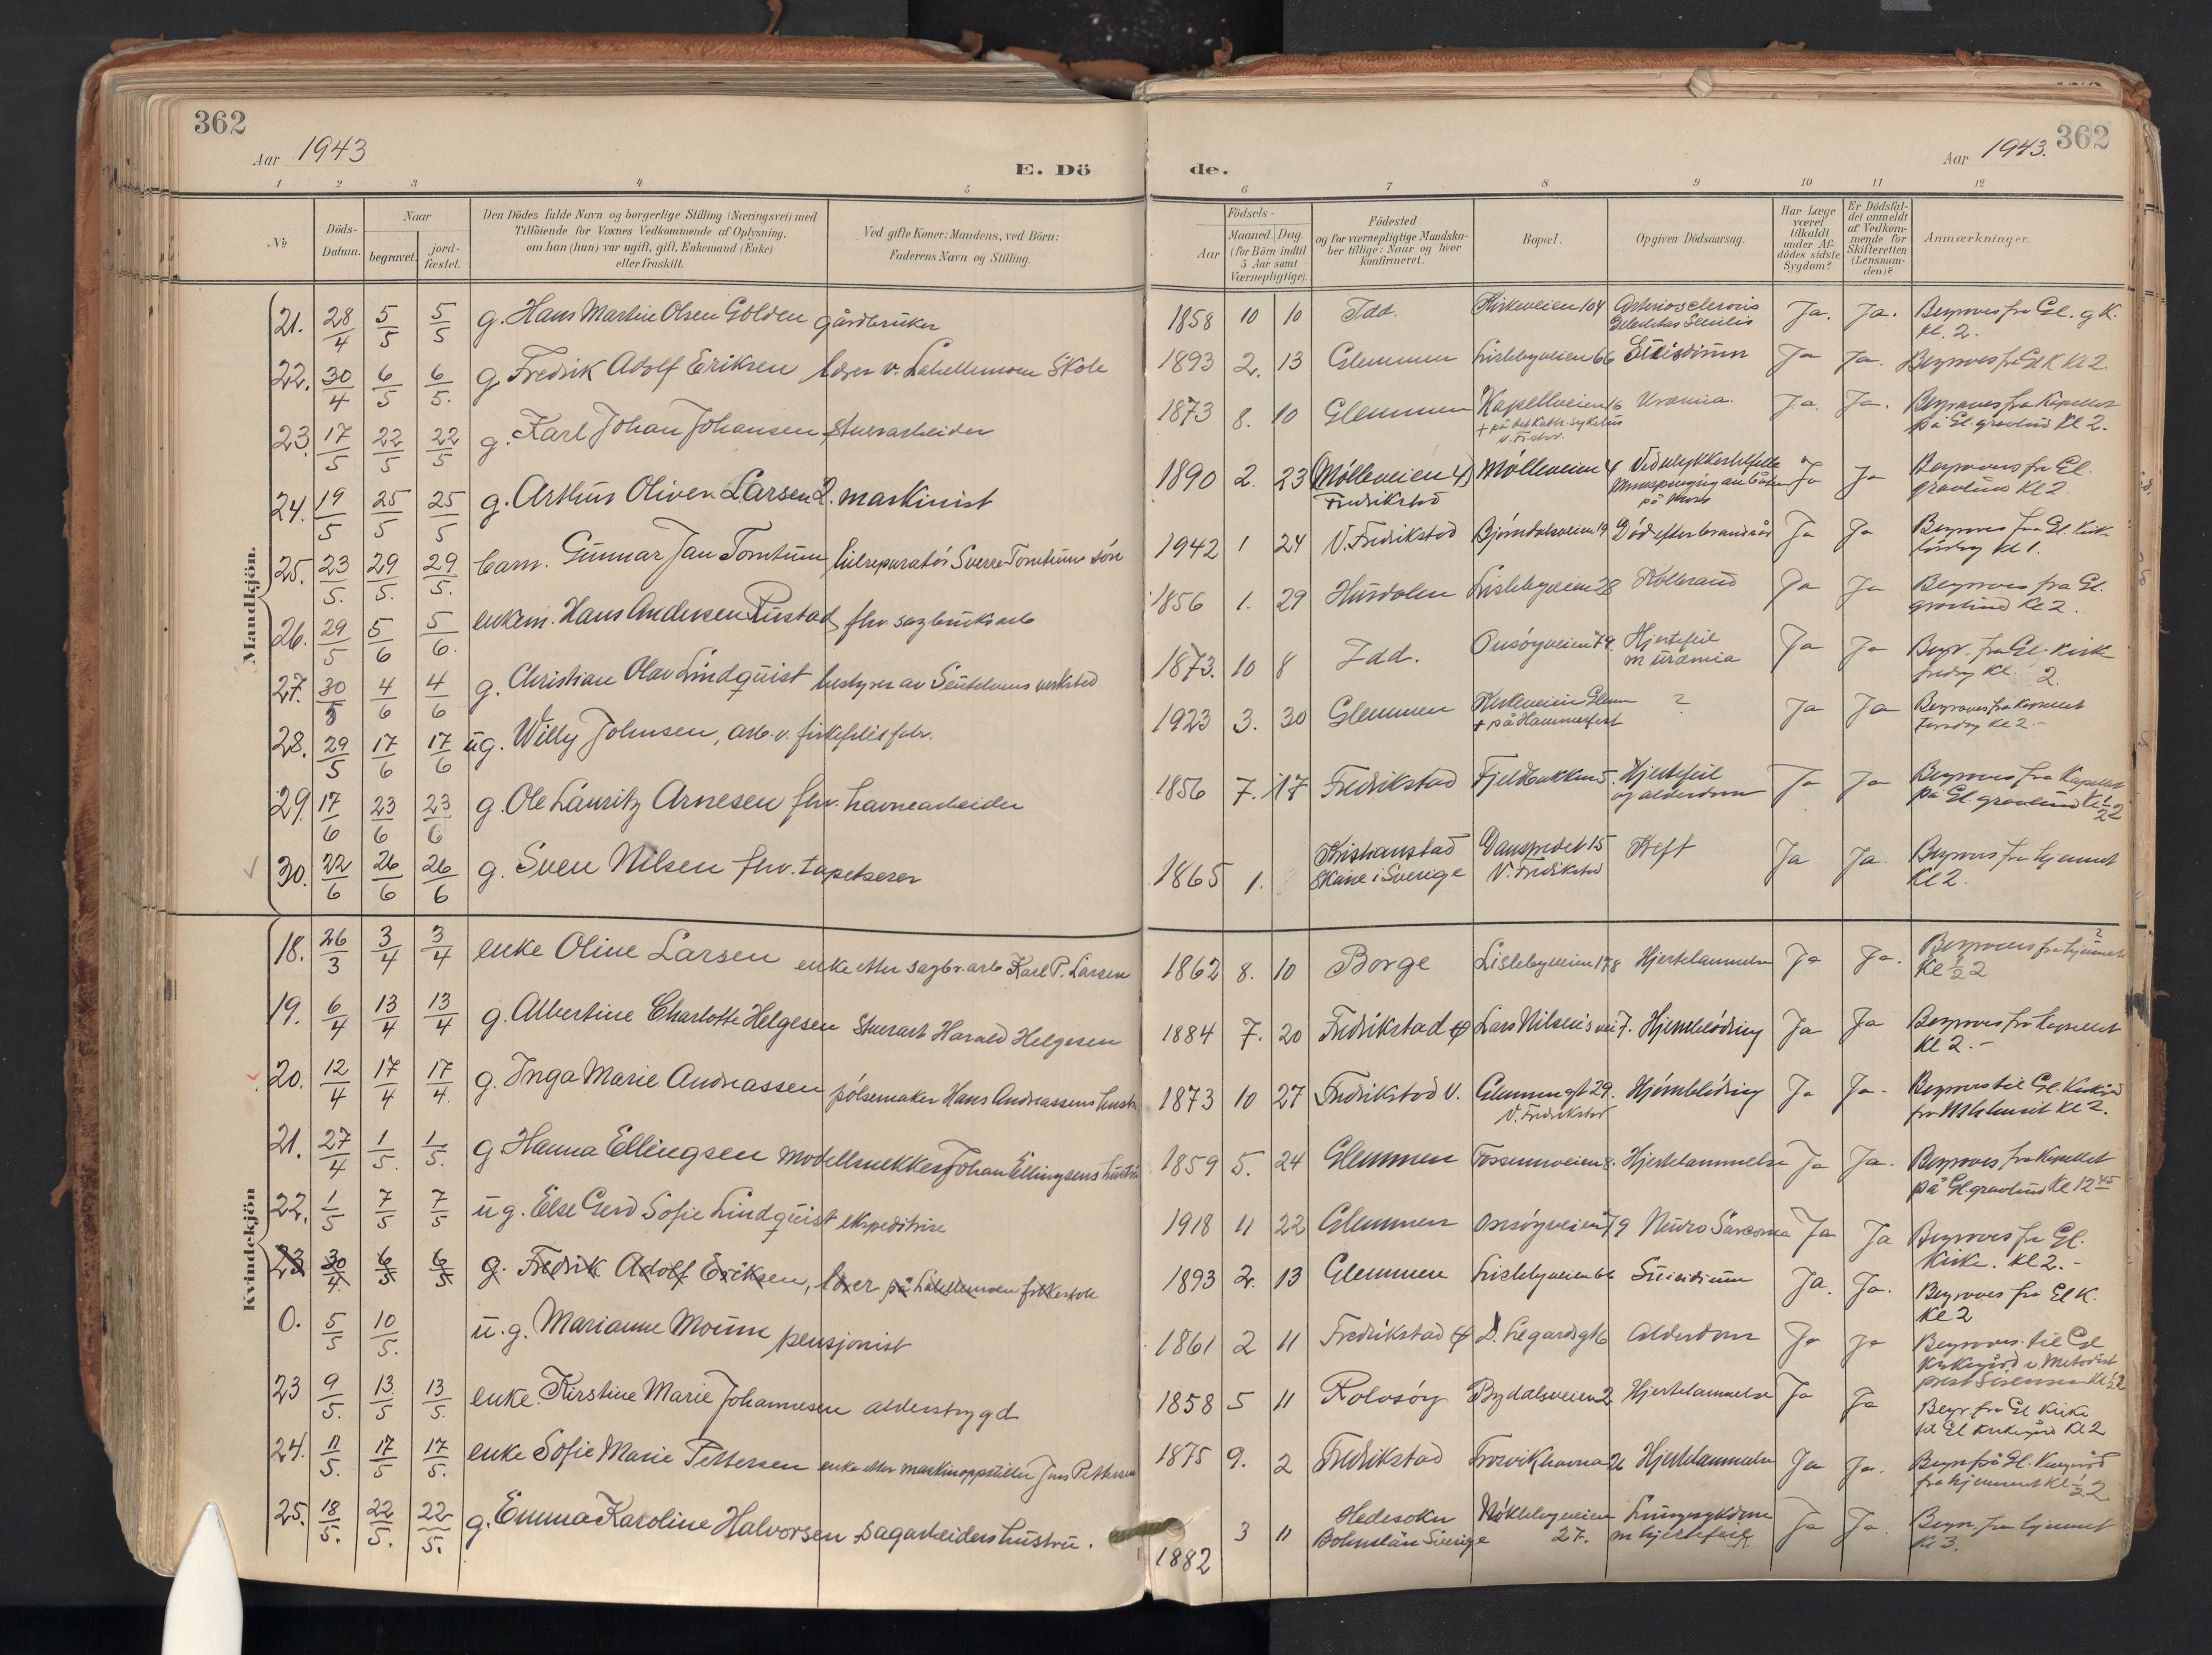 362
Aar 1943
E. Dö
de.
Aar 1943. 362
1 2 3 4 5 6 7 8 9 10 11 12
№ Döds-Datum. Naar begravet. jord-fæstet.
Den Dödes fulde Navn og borgerlige Stilling (Næringsvei) med
Tilföiende for Voxnes Vedkommende af Oplysning,
om han (hun) var ugift, gift, Enkemand (Enke)
eller fraskilt.
Ved gifte Koner: Mandens, ved Börn:
Faderens Navn og Stilling.
Födsels-
Aar Maaned. Dag
(for Börn indtil
5 Aar samt
Værnepligtige).
Födested
og for værnepligtige Mandska-
ber tillige: Naar og hvor
konfirmeret.
Bopæl.
Opgiven Dödsaarsag.
Har Læge
været
tilkaldt
under Af-
dödes sidste
Sygdom?
Er Dödsfal-
det anmeldt
af Vedkom-
mende for
Skifteretten
(Lensman-
den)?
Anmærkninger.
Mandkjön.
21. 28/4 5/5 5/5 g. Hans Martin Olsen Golden gårdbruker 1858 10 10 Idd. Kirkeveien 104 Arteriosclerosis Ja. Ja. Begraves fra Gl. g K.
kl. 2.
22. 30/4 6/5 6/5. g. Fredrik Adolf Eriksen lærer v. Lahellemoen Skole 1893 2. 13 Glemmen Lislebyveien 66 Suisidium Ja Ja. Begraves fra Gl K Kl 2.
23. 17/5 22/5 22/5 g. Karl Johan Johansen Stuerarbeider 1873 8. 10 Glemmen Kapellveien 16 Uræmia. Ja. Ja. Begraves fra Kapellet
på Gl. gravlund Kl 2.
24. 19/5 25/5 25/5 g. Arthur Oliver Larsen 2. maskinist 1890 2. 23 (Mölleveien 4) Mölleveien 4 Ved ulykkestilfelle Ja Ja Begraves fra Gl.
Fredrikstad gravlund Kl 2
25. 23/5. 29/5. 29/5. barn. Gunnar Jan Tomtum, bilreparatör Sverre Tomtums sön 1942 1 24 V. Fredrikstad Bjørndalsveien 19 Död efter brandsår Ja Ja Begraves fra Gl. Kirke
lördag kl 1.
26. 29/5 5/6 5/6. enkem. Hans Andersen Rustad, fhv. sagbruksarb 1856 1. 29 Husdalen Lislebyveien 28 Kolbrand Ja Ja Begraves fra Gl.
gravlund Kl 2.
27. 30/5 4/6 4/6 g. Christian Olav Lindquist bestyrer av Seutelvens verksted 1873. 10 8 Idd. Onsöyveien 79. Hjertefeil
m uræmia Ja Ja Begr. fra Gl. Kirke
fredag Kl. 2.
28. 29/5 17/6 17/6 ug. Willy Johnsen, arb. v. fiskefiletfabr. 1923 3. 30 Glemmen Kirkeveien Glem
+ på Hammerfest ? Ja Ja Begraves fra Kapellet
Torsdag Kl 2.-
29. 17/6 23/6 23/6 g. Ole Lauritz Arnesen fhv. havnearbeider 1856 7. 17 Fredrikstad Fjeldbakken 5. Hjertefeil
og alderdom Ja Ja Begraves fra Kapellet
på Gl. gravlund Kl 1/2 2
30. 22/6 26/6 26/6 g. Sven Nilsen fhv. tapetserer 1865 1. Kristianstad
Skåne i Sverige V. Fredrikstad Kreft Ja Ja. Begraves fra hjemmet
Kl 2.
Kvindekjön
18. 26/3 3/4 3/4 enke Oline Larsen enke etter sagbr. arb Karl P. Larsen 1862 8. 10 Borge Lislebyveien 178 Hjertelammelse Ja Ja. Begraves fra hjemmet
Kl 1/2 2
19. 6/4 13/4 13/4 g. Albertine Charlotte Helgesen Stuerarb Harald Helgesen 1884 7. 20 Fredrikstad Lars Nilsens vei 7. Hjerneblödning Ja Ja Begraves fra Kapellet
Kl 2.-
20. 12/4 17/4 17/4. g. Inga Marie Andreassen pølsemaker Hans Andreassens hustru 1873 10 27 Fredrikstad V. Glemmengt 29.
V. Fredrikstad Hjerneblödning Ja Ja. Begraves til Gl. Kirkegård
Kl 2.
21. 27/4 1/5. 1/5. g Hanna Ellingsen modellsnekker Johan Ellingsens hustru 1859 5. 24 Glemmen Fossumveien 8. Hjertelammelse Ja Ja. Begraves fra Kapellet
på Gl. gravlund Kl 12 45
22. 1/5 7/5 7/5 ug. Else Gerd Sofie Lindquist ekspeditrise 1918 11 22 Glemmen Onsøyveien 79 Neuro Sarcoma Ja Ja Begraves fra Gl.
Kirke. Kl 2.-
23 30/4. 6/5 6/5 g. Fredrik Adolf Eriksen, lærer på Lahellemoen folkeskole 1893 2. 13 Glemmen Lislebyveien 66 Suisidium Ja. Ja. Begraves fra Gl K.
Kl 2
0. 5/5 10/5. u.g. Marianne Moum pensjonist 1861 2 11 Fredrikstad Alderdom Ja Ja Begraves til Gl
Kirkegård v. Metodist
23 9/5. 13/5 13/5. enke. Kirstine Marie Johannesen alderstrygd 1858 5 11 Rolvsöy Bydalsveien 2 Hjertelammelse Ja Ja Begr. fra Gl Kirke
til Gl Kirkegård Kl 2
24. 11/5. 17/5 17/5. enke Sofie Marie Pettersen enke etter maskinoppsitter Jens Pettersen 1875 9. 2 Fredrikstad Trosvikhavna 26 Hjertelammelse Ja Ja.
fra hjemmet Kl 1/2 2
25. 18/5. 22/5. 22/5. g. Emma Karoline Halvorsen sagarbeiders hustru. 1882 3 11 Hedesoken
Bohuslän Sverige Nöklebyveien
27. Lungesykdom
m hjertefeil Ja Ja. Begr. fra hjemmet
Kl 3.